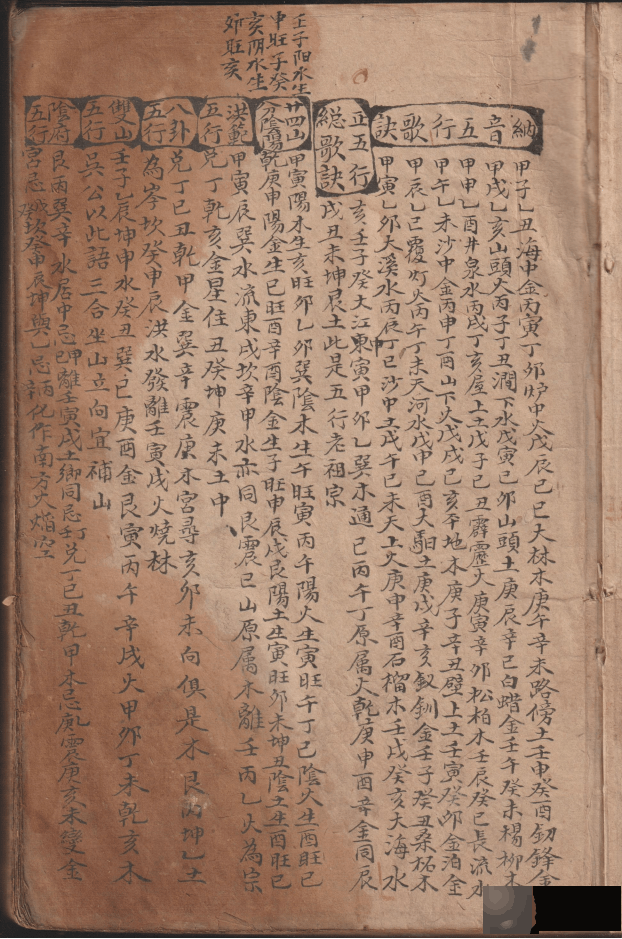 納音五行歌訣
甲子乙丑海中金丙寅丁卯炉中火戊辰己巳大林木庚午辛未路傍土壬申癸酉釼鋒金
甲戌乙亥山頭火丙子丁丑澗下水戊寅己卯山頭土庚辰辛巳白蜡金壬午癸未楊柳木
甲申乙酉井泉水丙戌丁亥屋上土戊子己丑霹靂火庚寅辛卯松柏木壬辰癸巳長流水
甲午乙未沙中金丙申丁酉山下火戊戌己亥平地木庚子辛丑壁上土壬寅癸卯金泊金
甲辰乙巳覆灯火丙午丁未天河水戊申己酉大驲土庚戌辛亥釵釧金壬子癸丑桑柘木
甲寅乙卯大溪水丙辰丁巳沙中土戊午己未天上火庚申辛酉石榴木壬戌癸亥大海水
正五行総歌訣
亥壬子癸大江東寅甲卯乙巽木通巳丙午丁原属火乾庚申酉辛金同辰
戌丑未坤艮土此是五行老祖宗
壬子阳水生
申旺子癸
亥阴水生
卯旺亥
廿四山分陰陽
甲寅陽木生亥旺卯乙卯巽陰木生午旺寅丙午陽火生寅旺午丁巳陰火生酉旺巳
乾庚申陽金生巳旺酉辛酉陰金生子旺申辰戌艮陽土生寅旺卯未坤丑陰土生酉旺巳
洪範五行
甲寅辰巽水流東戌坎辛申水亦同艮震巳山原属木離壬丙乙火為宗
兌丁乾亥金星住丑癸坤庚未土中
八卦五行
兌丁巳丑乾甲金巽辛震庚木宮尋亥卯未向俱是木艮丙坤乙土
為岑坎癸申辰洪水發離壬寅戌火燒林
雙山五行
壬子乙辰坤申水癸丑巽巳庚酉金艮寅丙午辛戌火甲卯丁未乾亥木
吳公以此語三合坐山立向宜補山
陰府五行
艮丙巽辛水居中忌離壬寅戌土鄉同忌兌丁巳丑乾甲木忌震庚亥未變金
宮忌坎癸申辰坤與乙忌化作南方火焰空